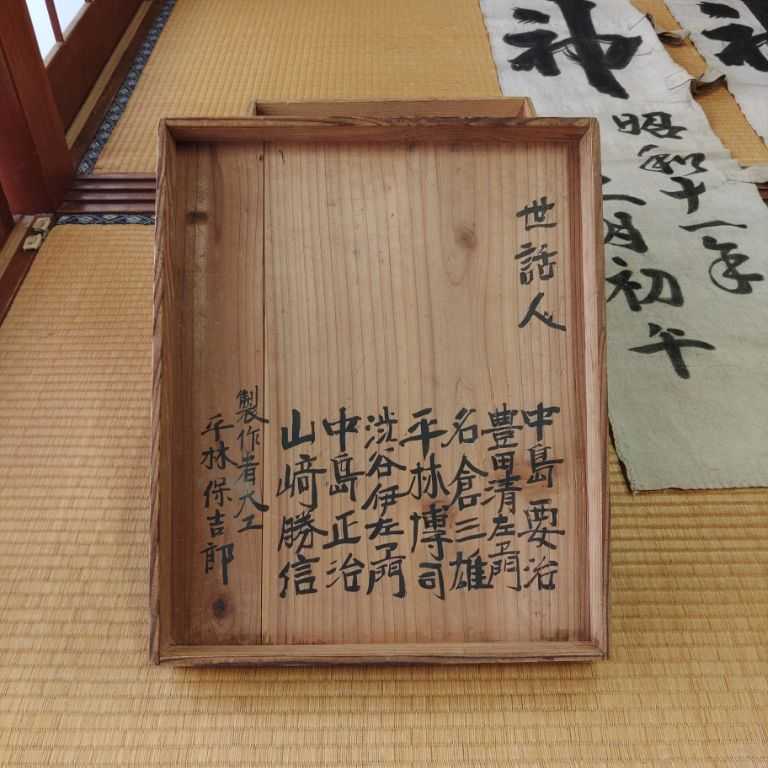 世話人
中島要治
豊田清左エ門
名倉三雄
平林博司
渋谷伊左エ門
中島正治
山﨑勝信
製作者大工
平林保吉郎
神
昭和十一年
二月初午
神